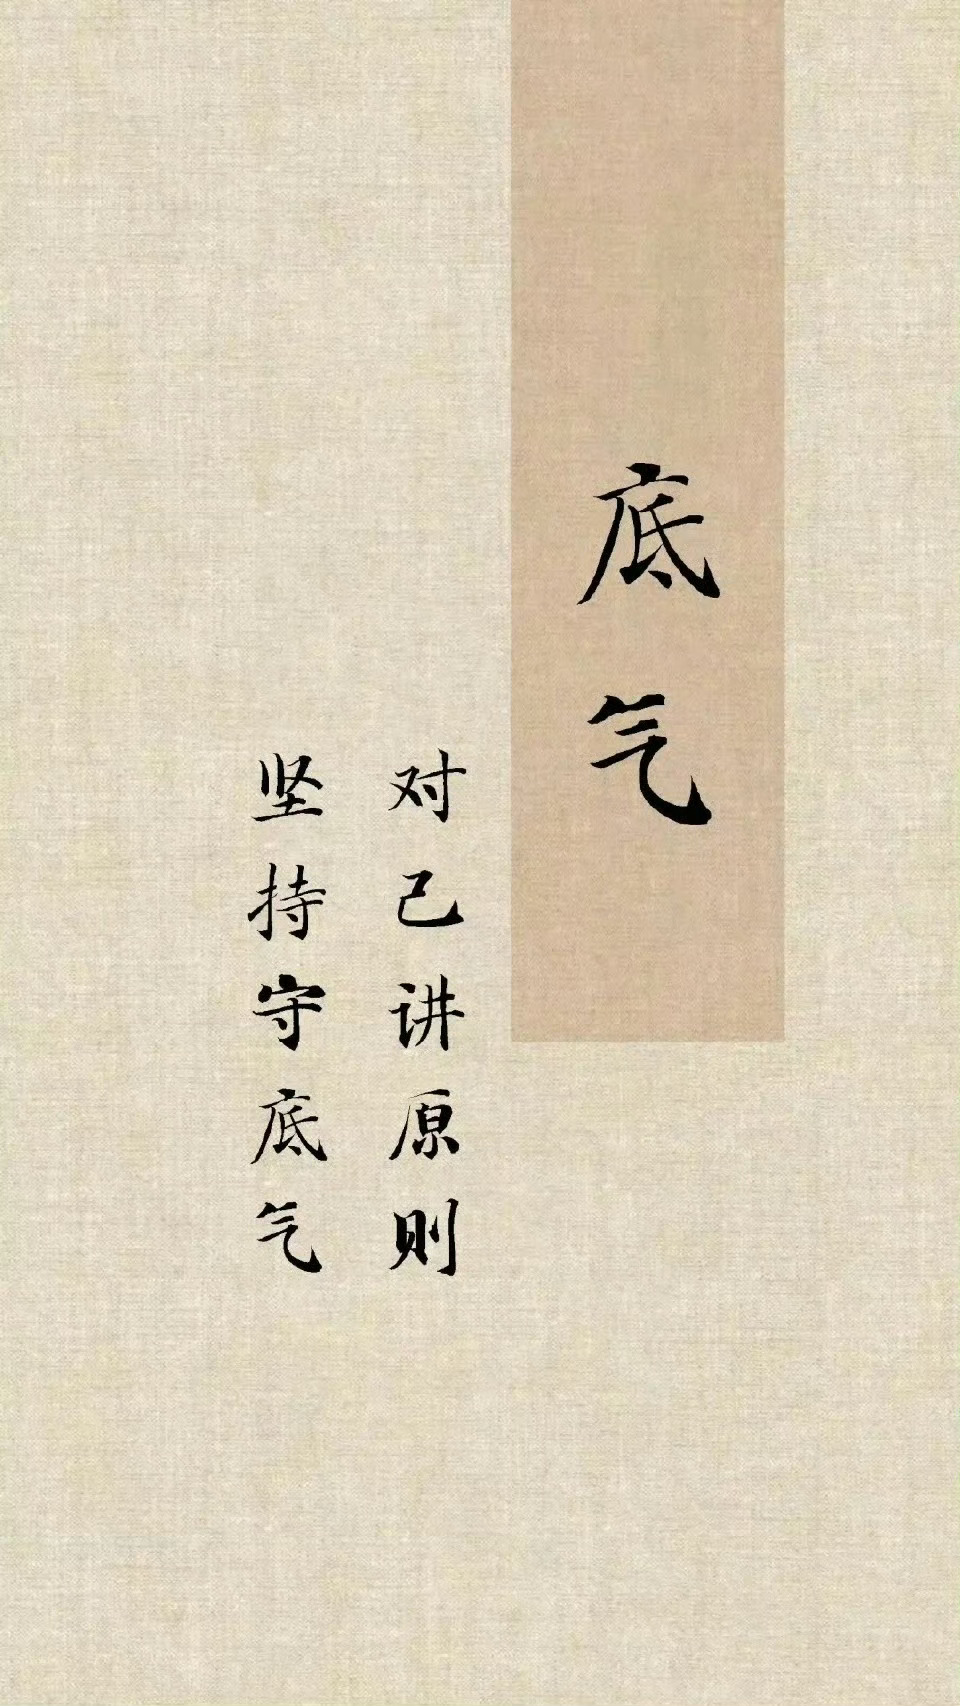 底气
对己讲原则
坚持守底气